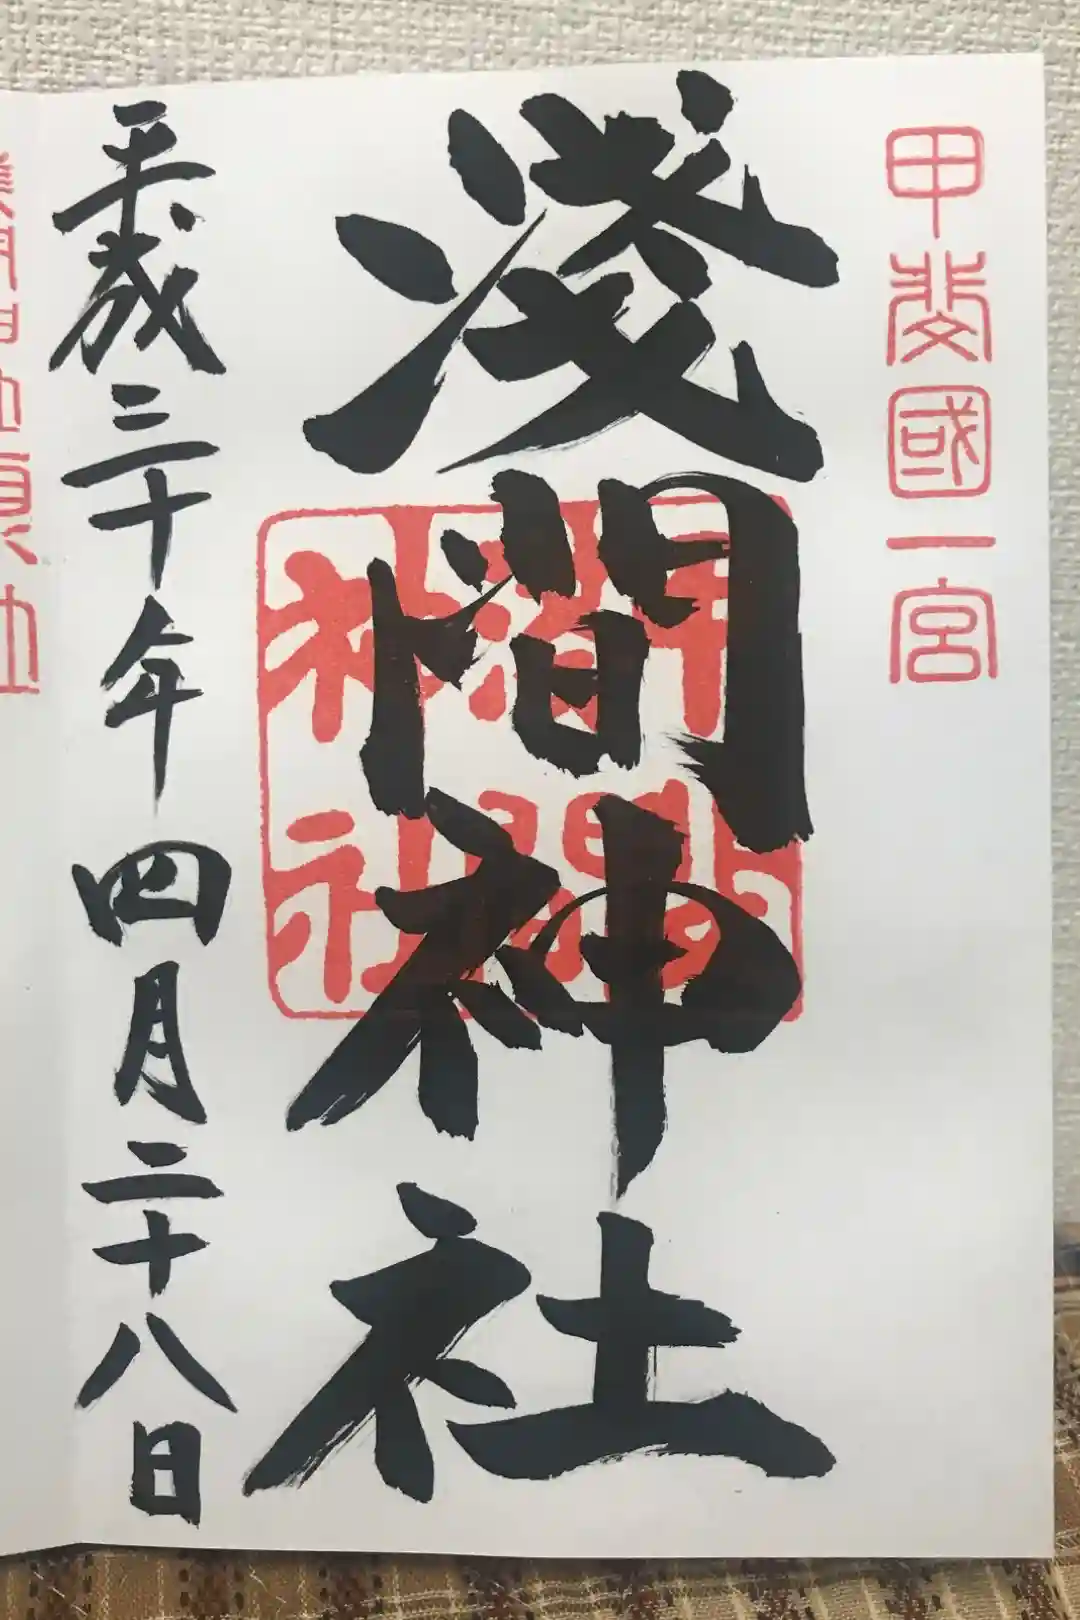 甲斐國一宮
淺間神社
平成三十年四月二十八日